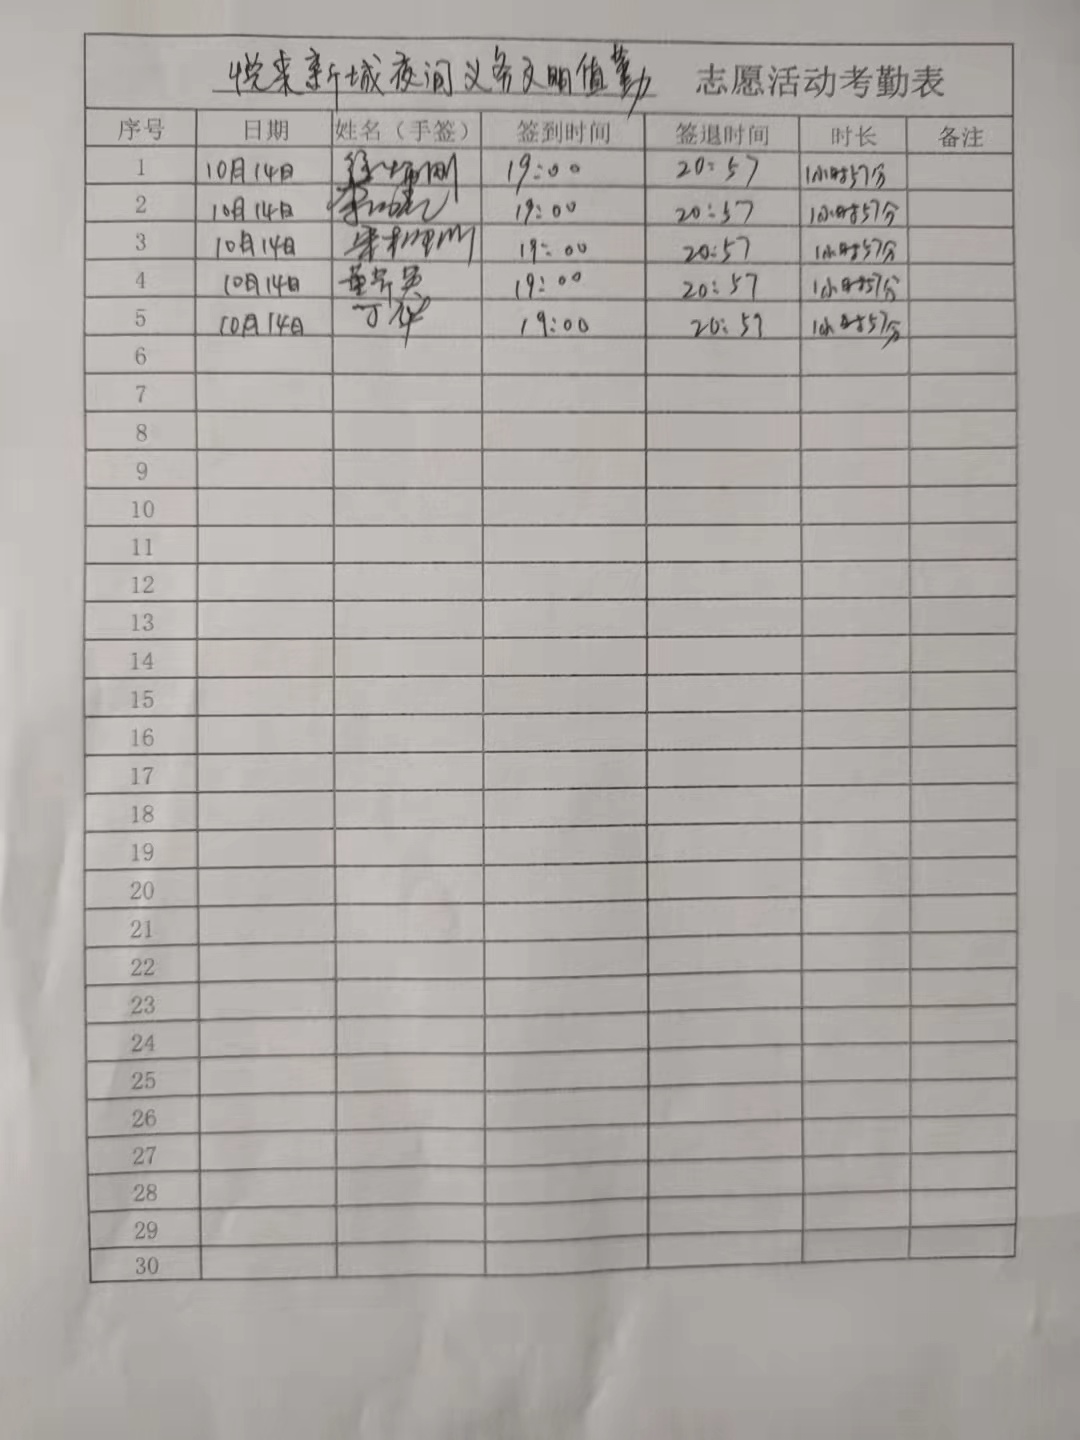 悦来新城夜间义务文明值勤 志愿活动考勤表
序号 日期 姓名（手签） 签到时间 签退时间 时长 备注
1 10月14日 19:00 20:57 1小时57分
2 10月14日 19:00 20:57 1小时57分
3 10月14日 19:00 20:57 1小时57分
4 10月14日 19:00 20:57 1小时57分
5 10月14日 丁华 19:00 20:57 1小时57分
6
7
8
9
10
11
12
13
14
15
16
17
18
19
20
21
22
23
24
25
26
27
28
29
30